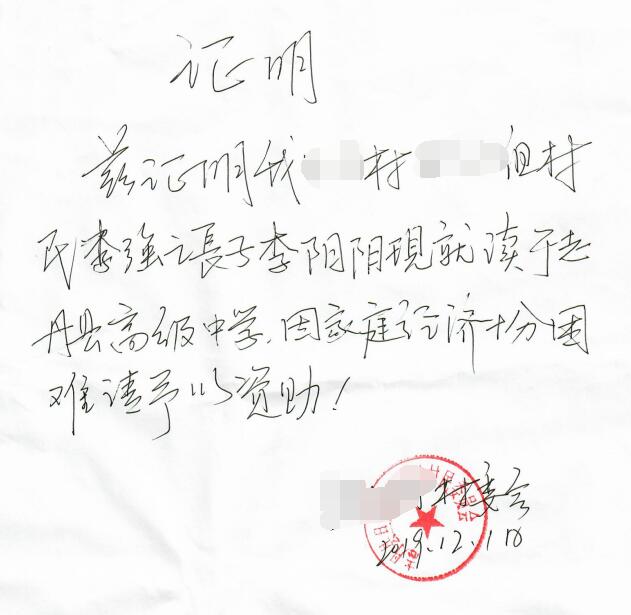 证明
兹证明我 村 组村
民李强之長子李阳阳現就读于志
丹县高级中学,因家庭经济十分困
难请予以资助!
村委会
2019.12.1日